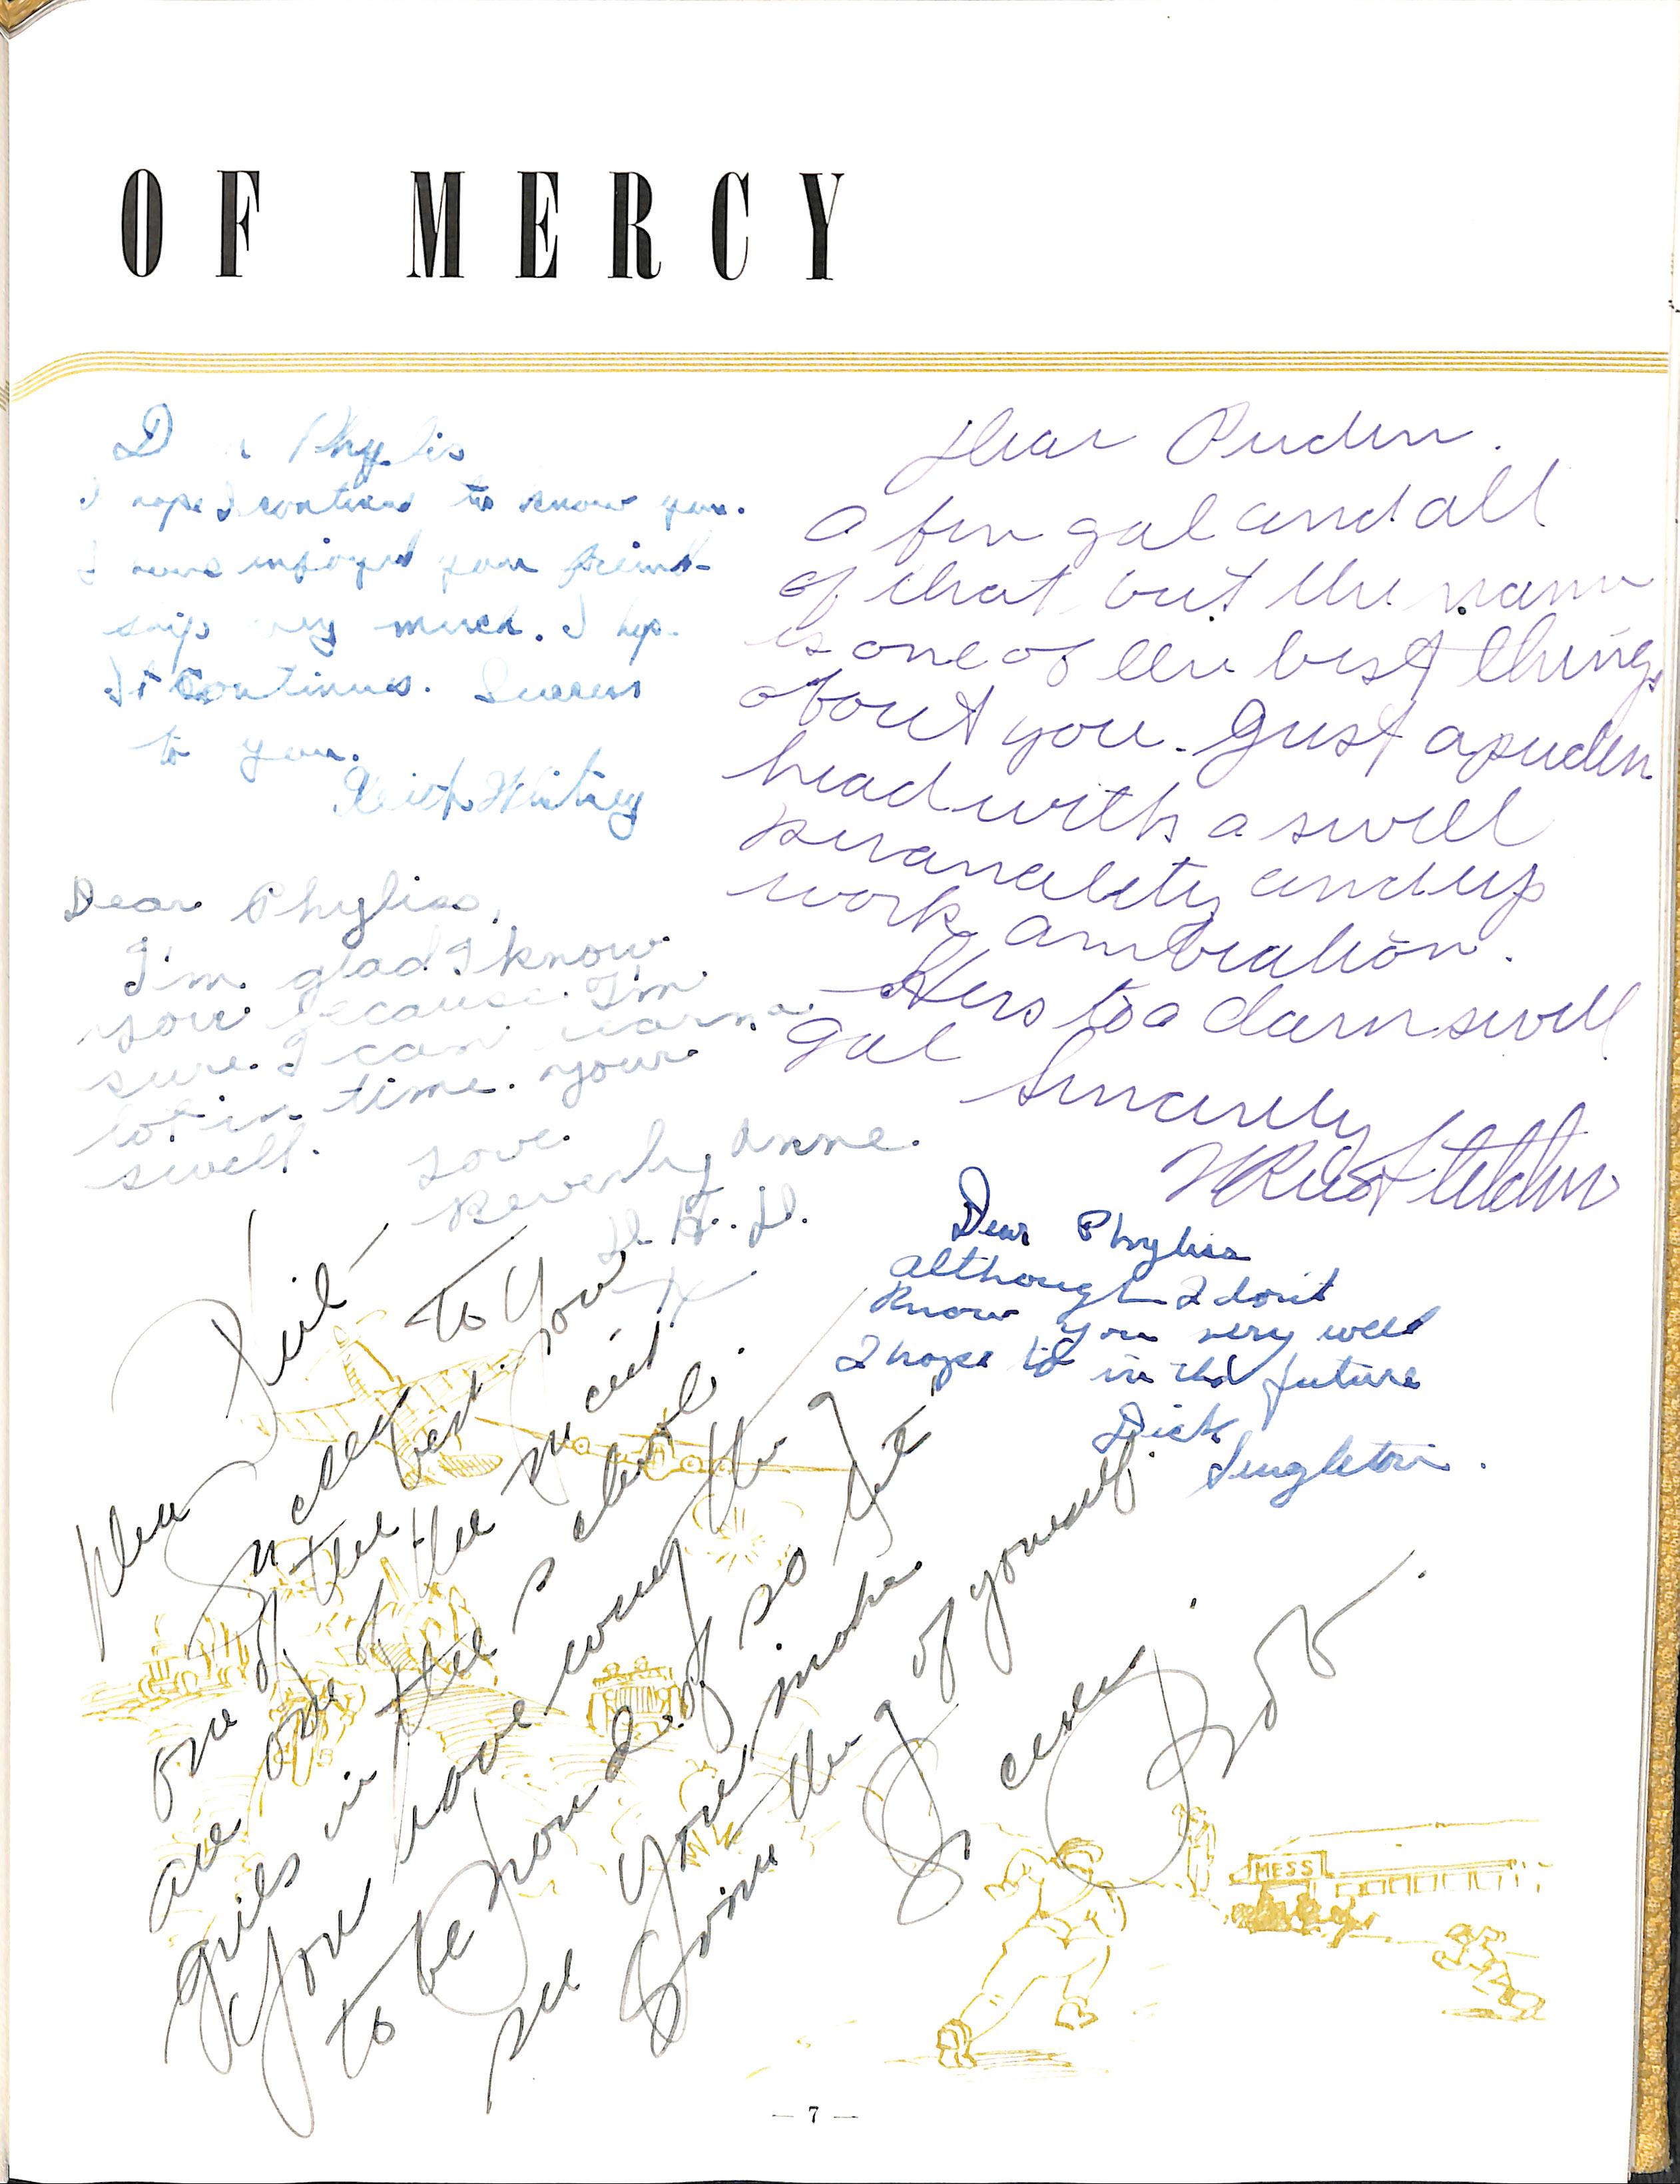 OF MERCY
Dear Phyllis
I hope I continue to know you.
I have enjoyed your friend-
ship very much. I hope
It continues. Success
to you.
Whitney
Dear Phyliss,
I'm glad I know
you because I'm
sure I can learn a
lot in time. your
swell.
Love
Beverly Anne
Dear Puden.
a fin gal and all
of that but the name
is one of the best things
about you. Just a puden
head with a swell
and up
work
Hers to a darn swell
gal
Sincerely
Dear Phyliss
Although I don't
know you very well
I hope to in the future
Dick
Singleton.
Dear Phil-
Success To You
one of the best. You
are one of the
girls in the school.
You have everything
to be proud of so let's
see you make
something of yourself.
Bob.
MESS
— 7 —